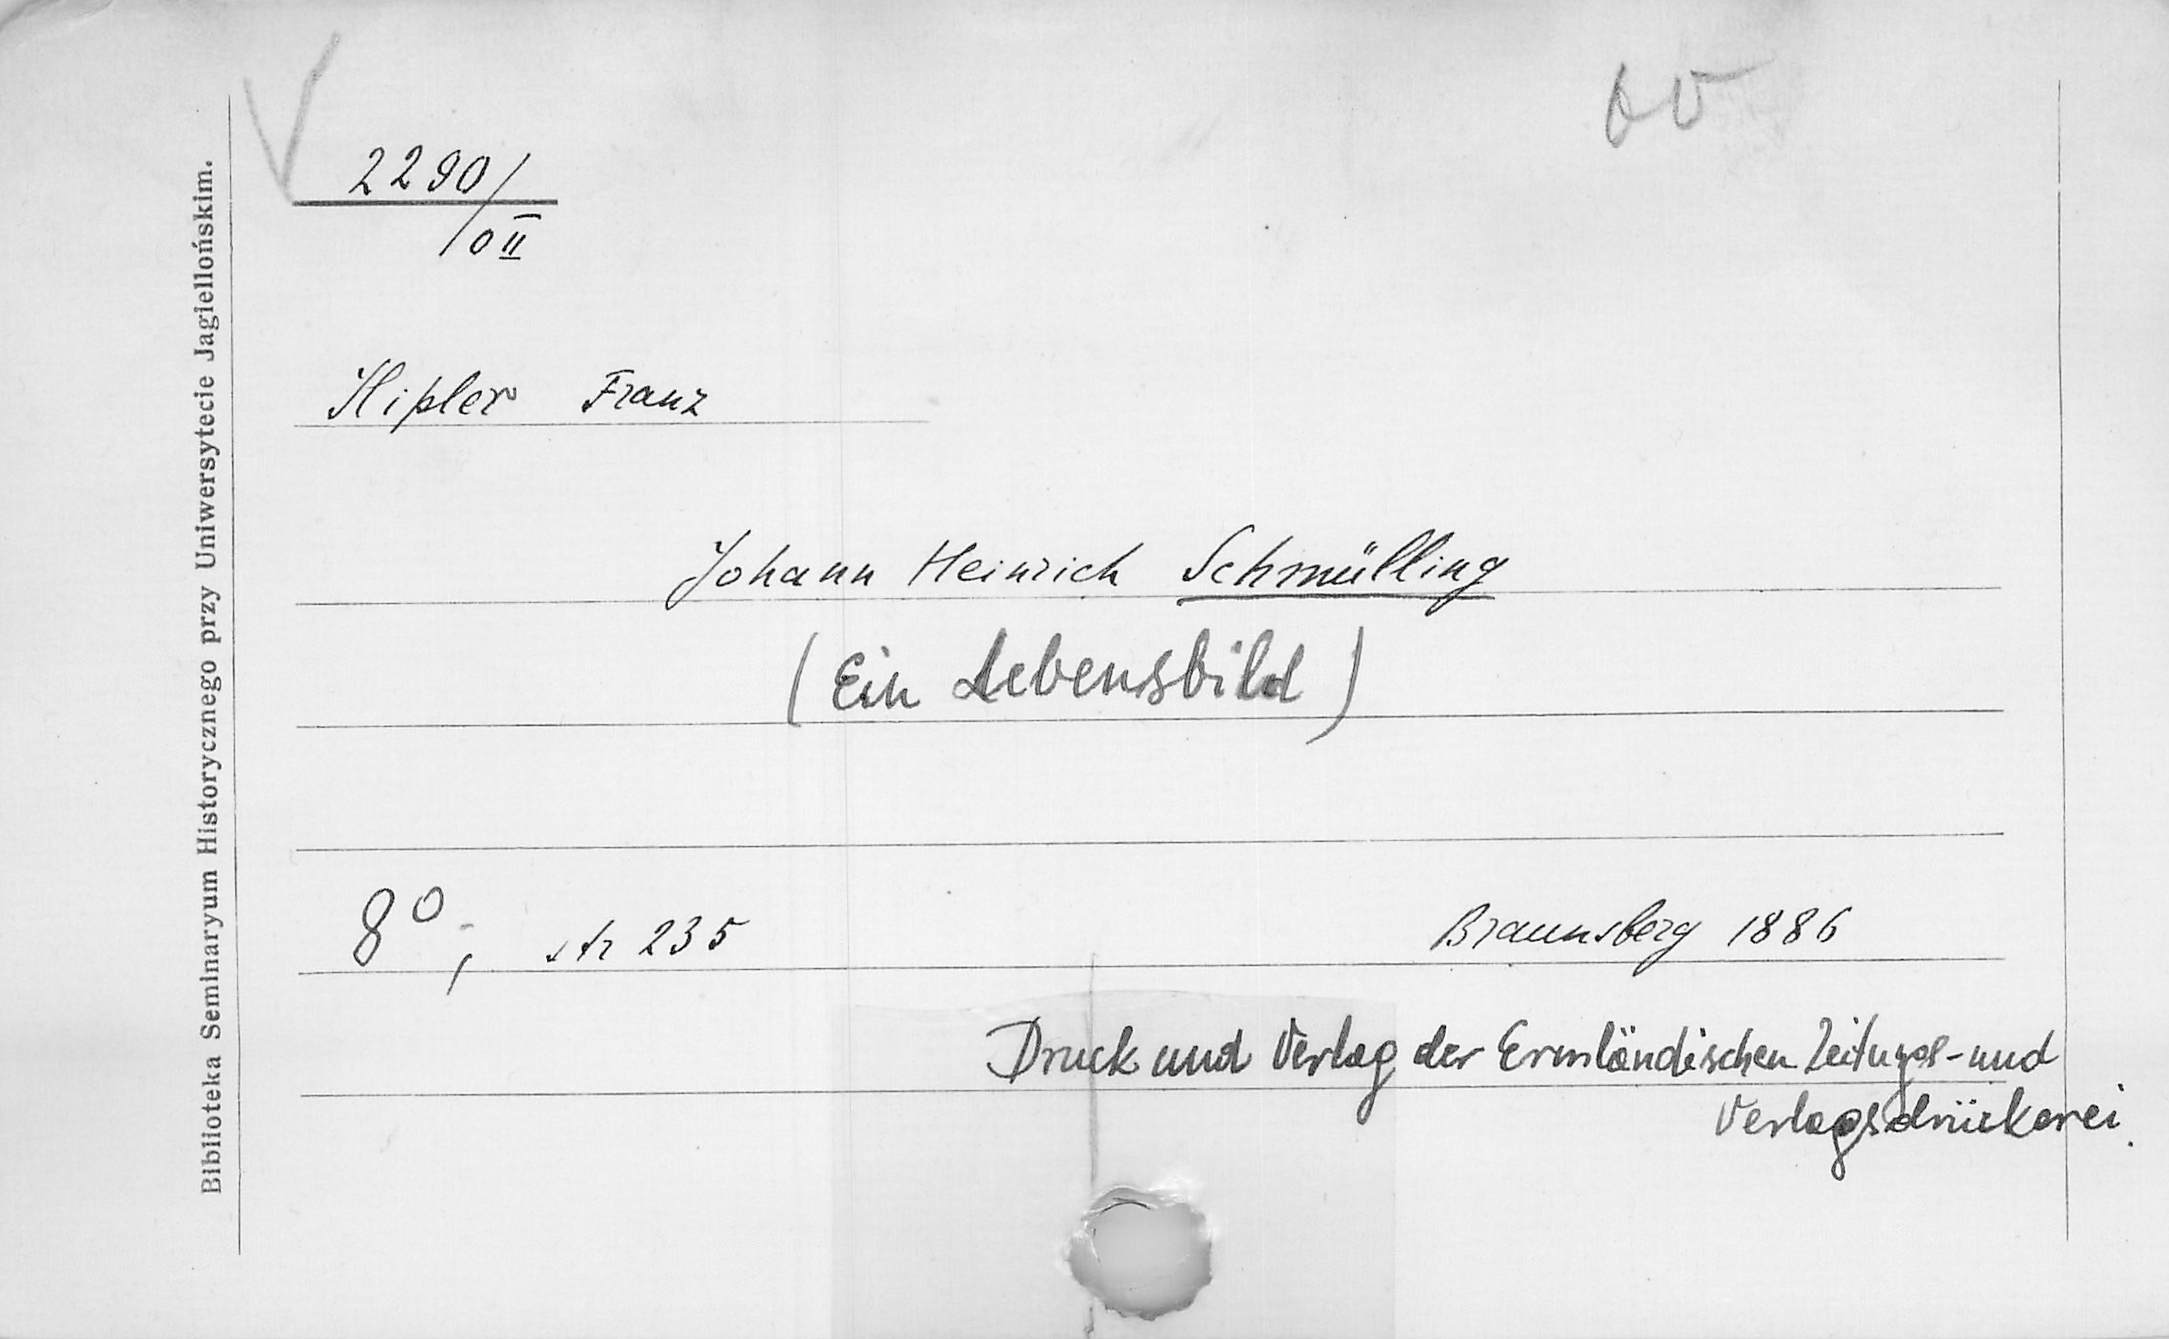 2290/
0II
Hipler Franz
Johann Heinrich Schmülling
(Ein Lebensbild)
8°, str 235
Braunsberg 1886
Druck und Verlag der Ermländischen Zeitungs-und
Verlagsdrückerei.
Biblioteka Seminaryum Historycznego przy Uniwersytecie Jagiellońskim.